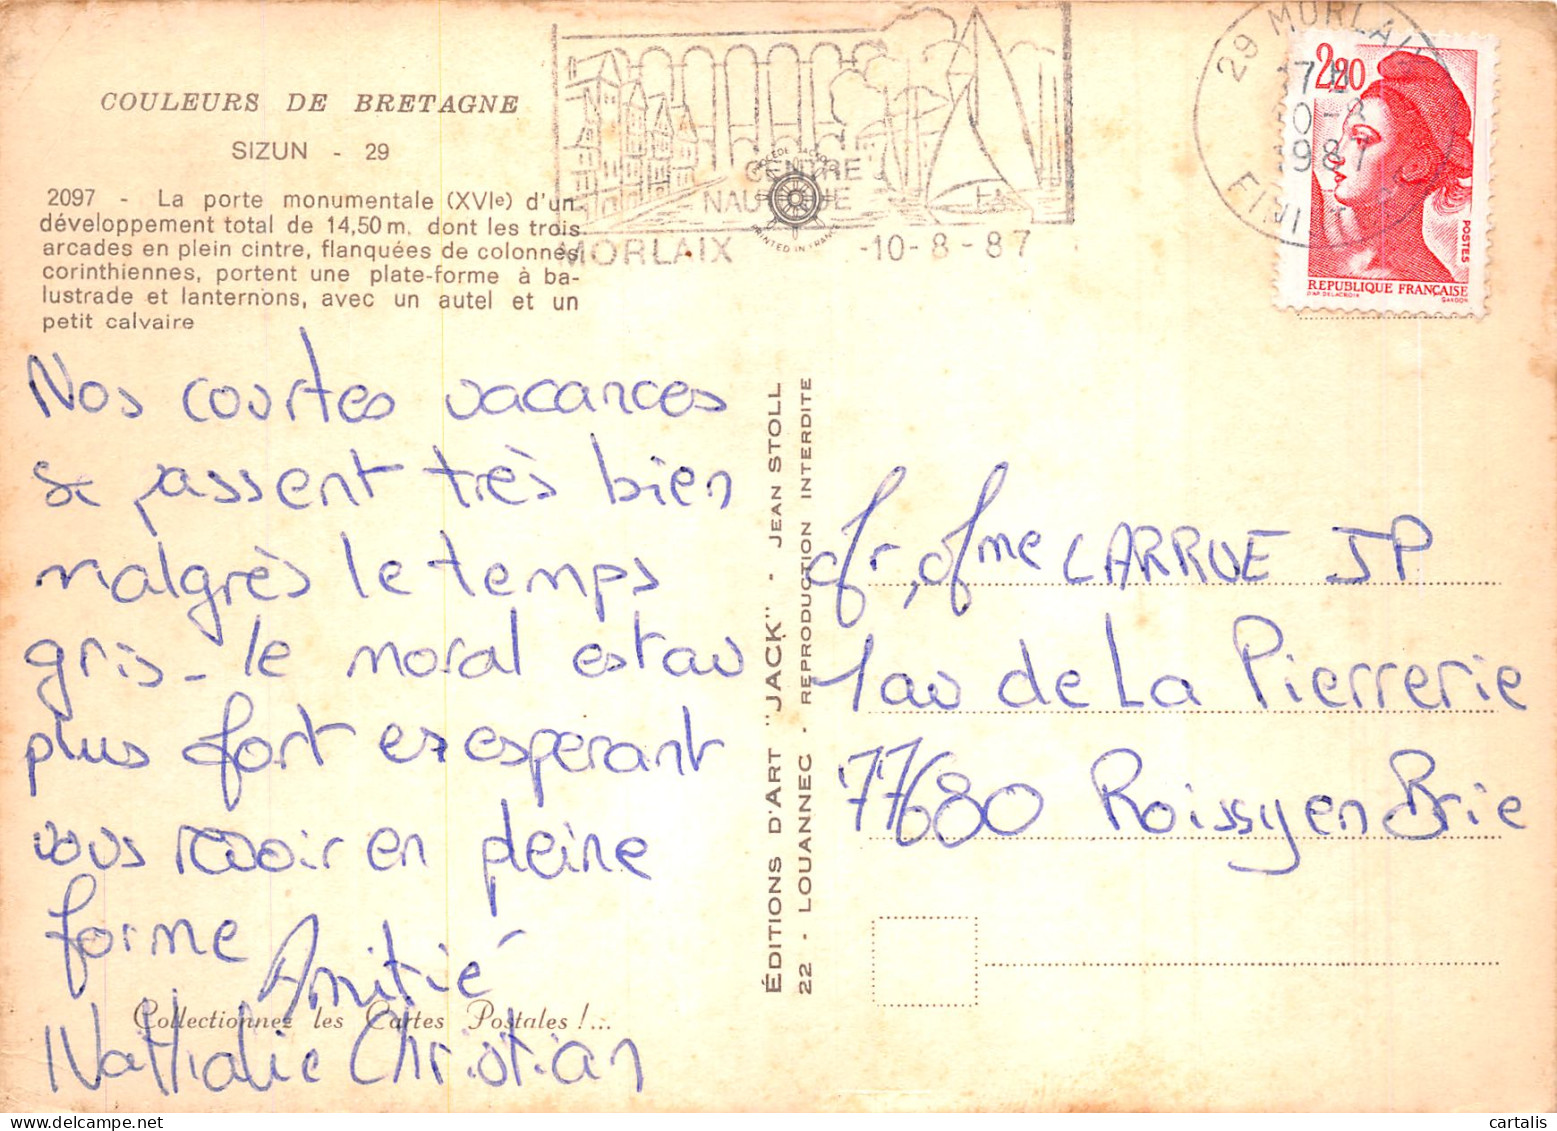 COULEURS DE BRETAGNE
SIZUN - 29
2097 - La porte monumentale (XVIe) d'un
développement total de 14,50 m. dont les trois
arcades en plein cintre, flanquées de colonnes
corinthiennes, portent une plate-forme à ba-
lustrade et lanternons, avec un autel et un
petit calvaire
CENTRE
NAUTIQUE
MORLAIX -10-8-87
PRINTED IN FRANCE
29 MORLAIX
1987
2,20
POSTES
REPUBLIQUE FRANÇAISE
D'AP. DELACROIX GANDON
Nos courtes vacances
se passent très bien
malgrès le temps
gris - le moral est au
plus fort es esperant
vous revoir en pleine
forme
Amitié
Nathalie Christian
Collectionnez les Cartes Postales !...
ÉDITIONS D'ART "JACK" - JEAN STOLL
22 - LOUANNEC - REPRODUCTION INTERDITE
Mr, Mme LARRUE JP
1 av de La Pierrerie
77680 Roissy en Brie
cartalis